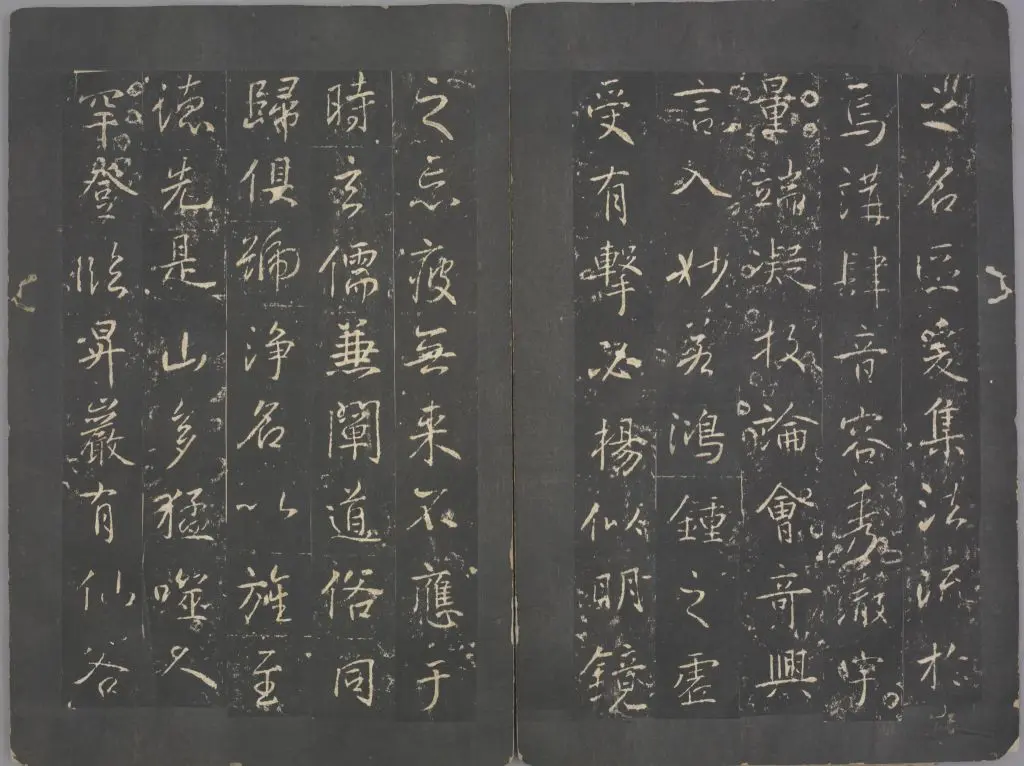 巡名區爰集法流於
焉講肆音容秀澈宇
量端凝投論會奇興
言入妙若鴻鍾之虛
受有擊必楊似明鏡
之忘疲無来不應于
時玄儒兼闡道俗同
歸俱號淨名以旌至
德先是山多猛噬人
罕登臨昇巖有仙谷